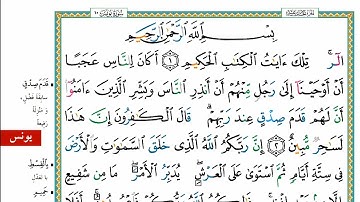 سورة يونس ١٠
بِسْمِ اللَّهِ الرَّحْمَٰنِ الرَّحِيمِ
الٓر ۚ تِلْكَ ءَايَٰتُ الْكِتَٰبِ الْحَكِيمِ ١ أَكَانَ لِلنَّاسِ عَجَبًا
أَنْ أَوْحَيْنَآ إِلَىٰ رَجُلٍ مِّنْهُمْ أَنْ أَنذِرِ النَّاسَ وَبَشِّرِ الَّذِينَ ءَامَنُوٓا۟
أَنَّ لَهُمْ قَدَمَ صِدْقٍ عِندَ رَبِّهِمْ ۗ قَالَ الْكَٰفِرُونَ إِنَّ هَٰذَا
لَسَٰحِرٌ مُّبِينٌ ٢ إِنَّ رَبَّكُمُ اللَّهُ الَّذِى خَلَقَ السَّمَٰوَٰتِ وَالْأَرْضَ
فِى سِتَّةِ أَيَّامٍ ثُمَّ اسْتَوَىٰ عَلَى الْعَرْشِ ۖ يُدَبِّرُ الْأَمْرَ ۖ مَا مِن شَفِيعٍ
قَدَمَ صِدْقٍ
سابقة فضل
يونس
بِالْقِسْطِ
حَمِيمٍ